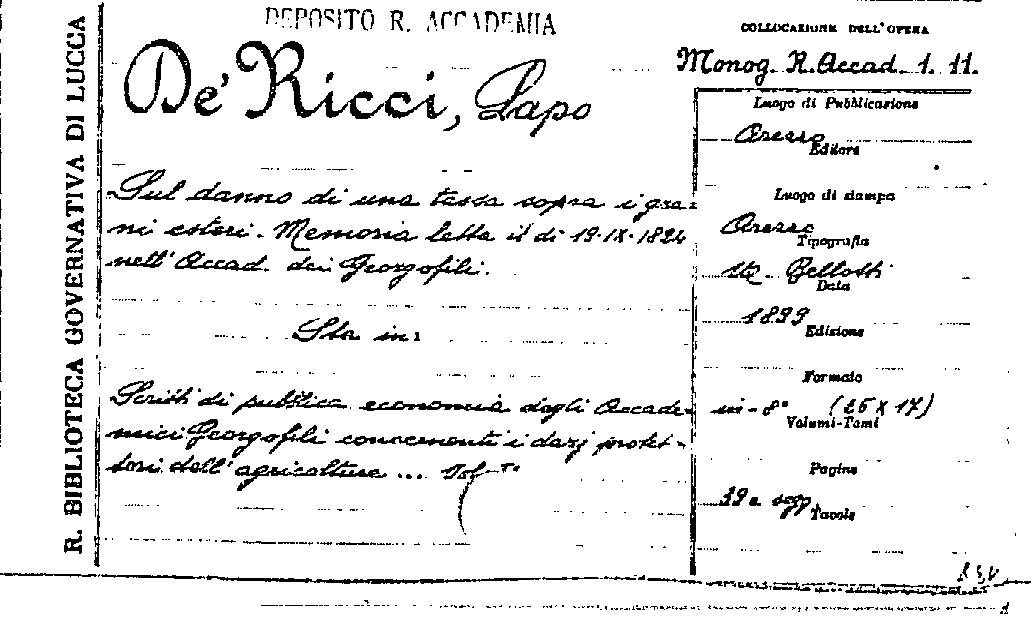 DEPOSITO R. ACCADEMIA
R. BIBLIOTECA GOVERNATIVA DI LUCCA
De' Ricci, Lapo
Sul danno di una tassa sopra i gra=
ni esteri. Memoria letta il dì 19·IX·1824
nell' Accad. dei Georgofili.
Sta in:
Scritti di pubblica economia degli Accade-
mici Georgofili concernenti i dazj protet-
tori dell' agricoltura ... Vol
COLLOCAZIONE DELL'OPERA
Monog. R. Accad. 1. 11.
Luogo di Pubblicazione
Arezzo
Editore
Luogo di stampa
Arezzo
Tipografia
Bellotti
Data
1899
Edizione
Formato
in-8° (26 X 17)
Volumi-Tomi
Pagine
39 e segg
Tavole